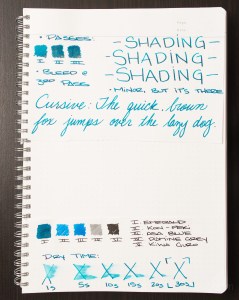 • PASSES:
-SHADING-
-SHADING-
-SHADING-
I II III
• BLEED @
3RD PASS
• MINOR, BUT IT'S THERE
Cursive: The quick, brown
fox jumps over the lazy dog.
I EMERALD
II KON-PEKI
III ASA BLUE
IV GREY
V KIWA GURO
I II III IV V
DRY TIME:
X X X X X X
1s 5s 10s 15s 20s 30s